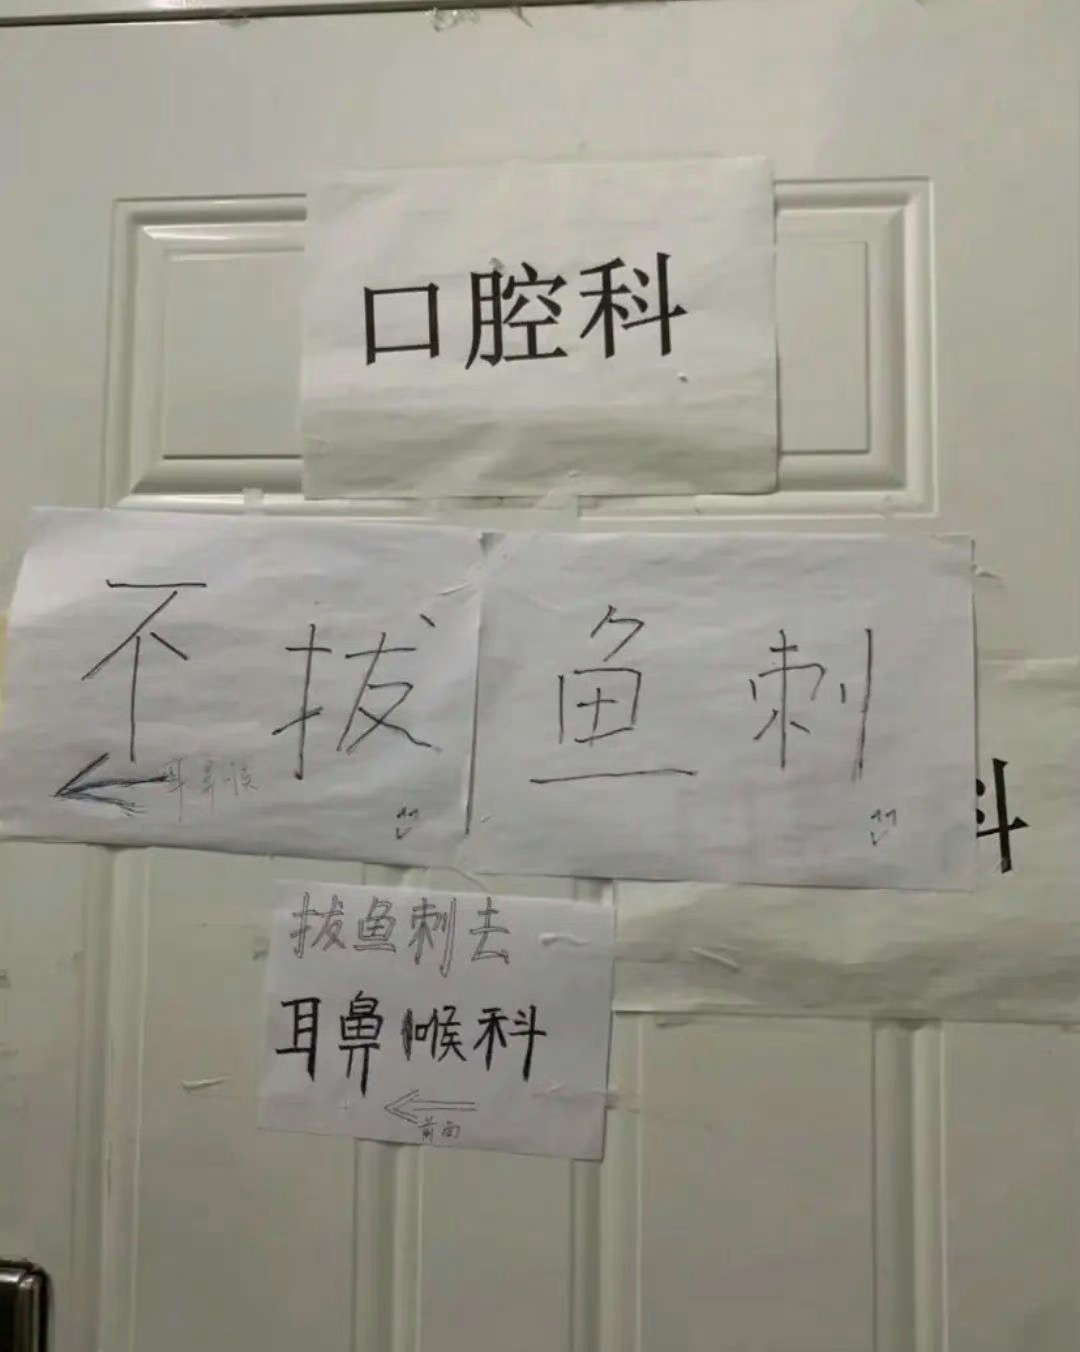 口腔科
不拔鱼刺
耳鼻喉
拔鱼刺去
耳鼻喉科
前面
科